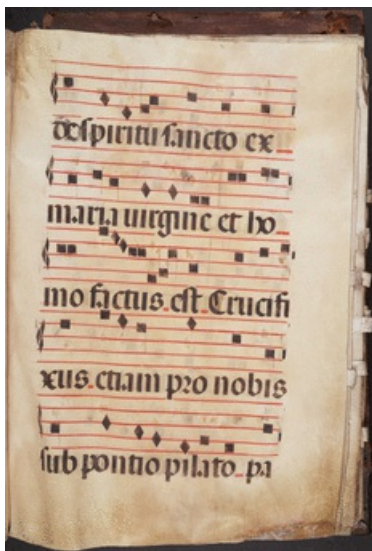 de spiritu sancto ex
maria uirgine et ho
mo factus. est. Crucifi
xus. etiam pro nobis
sub pontio pilato. pa